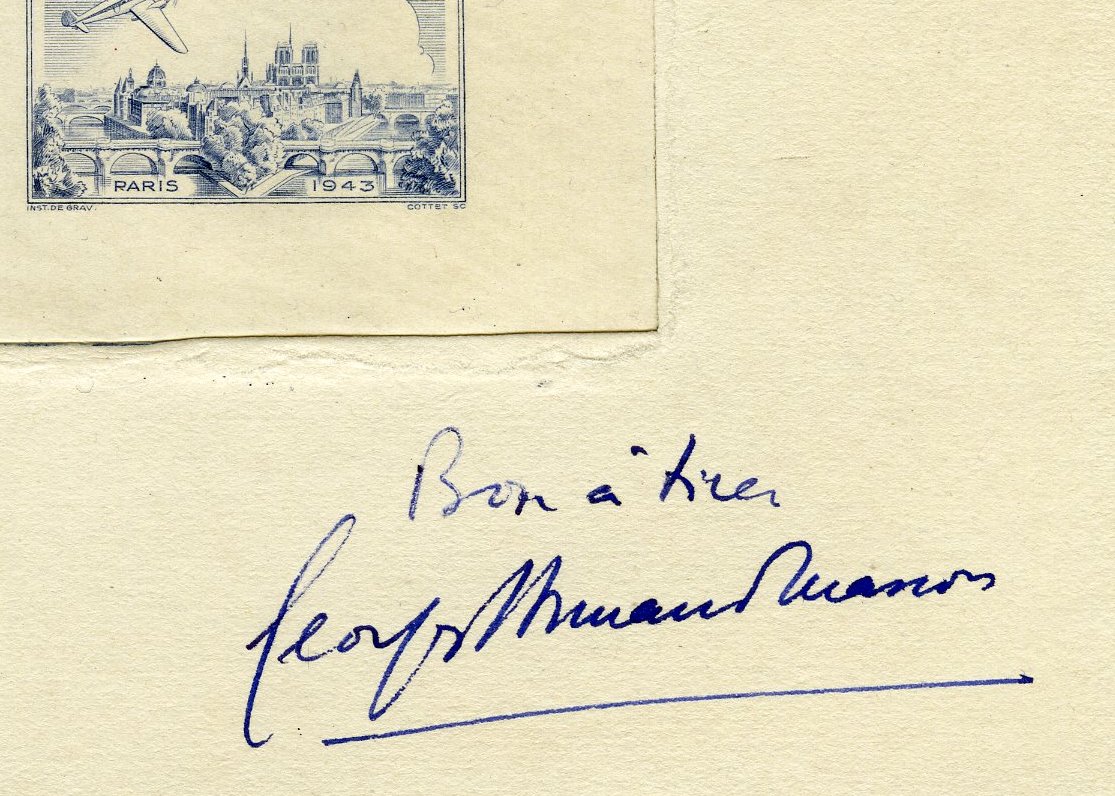 PARIS 1943
INST. DE GRAV. COTTET SC
Bon à tirer
Georges Armand Masson